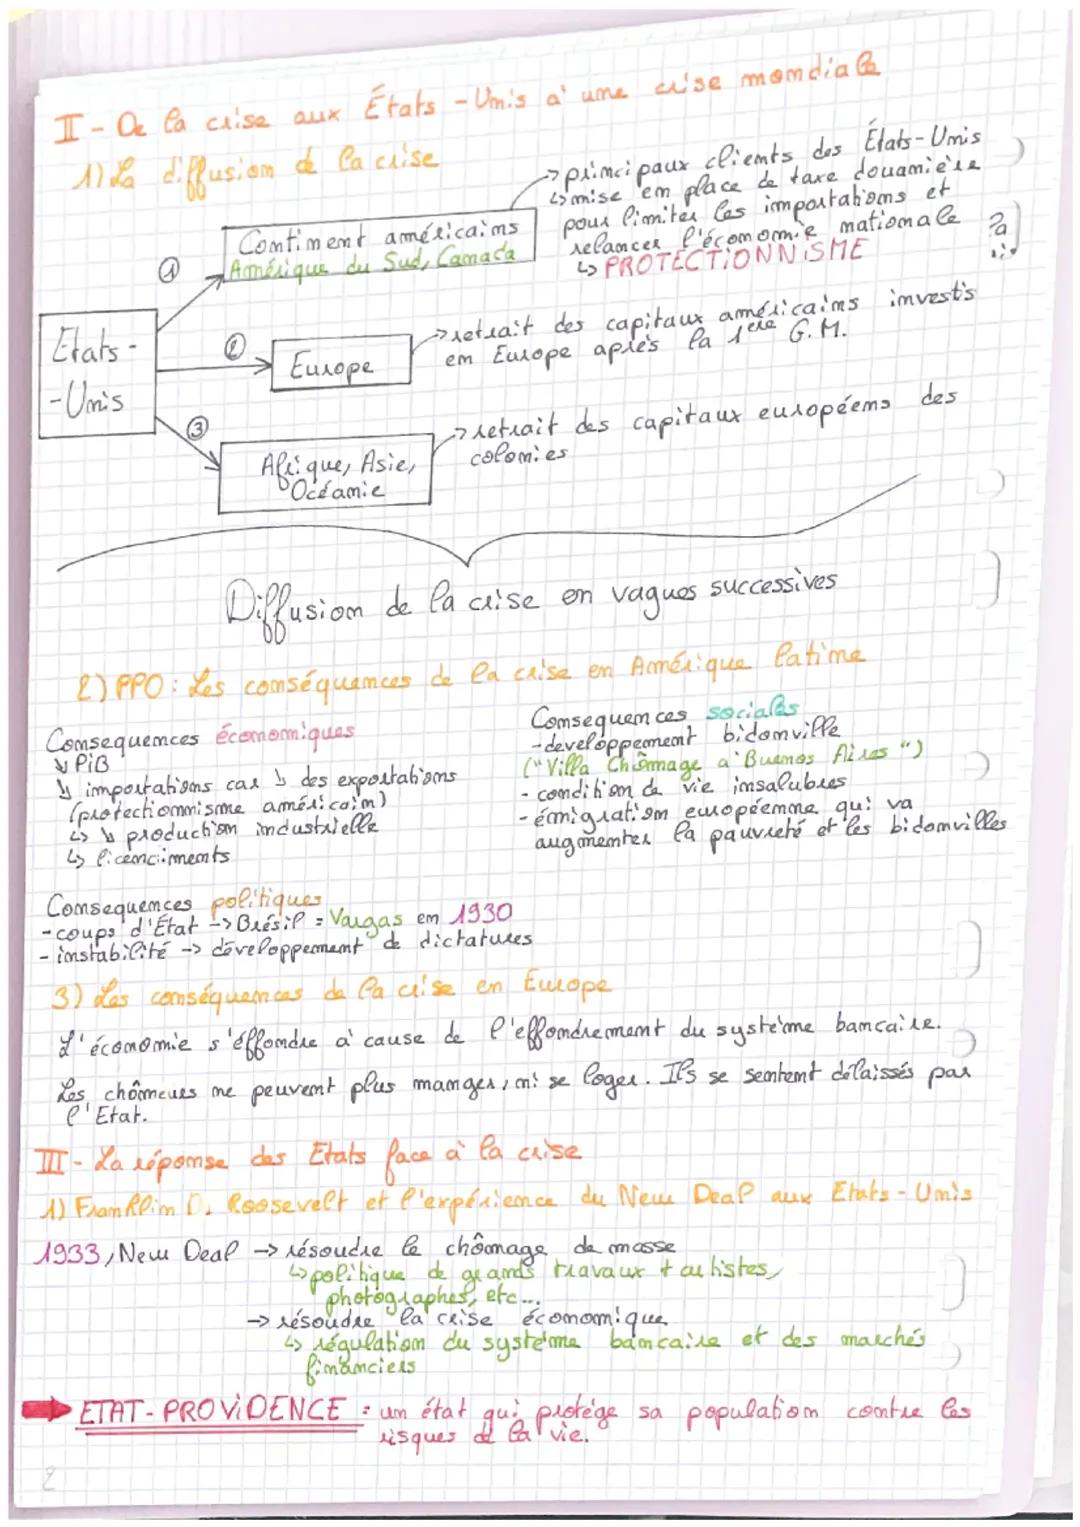 II - De la crise aux États-Unis à une crise mondiale
1) La diffusion de la crise
→ principaux clients des États-Unis
↳ mise en place de taxe douanière
pour limiter les importations et
relancer l'économie nationale
↳ PROTECTIONNISME
Continent américains
Amérique du Sud, Canada
①
États-
-Unis
②
Europe
→ retrait des capitaux américains investis
en Europe après la 1ere G.M.
③
Afrique, Asie,
Océanie
→ retrait des capitaux européens des
colonies
Diffusion de la crise en vagues successives
2) PPO : Les conséquences de la crise en Amérique latine
Consequences économiques
↘ PiB
↘ importations car ↘ des exportations
(protectionnisme américain)
↳ ↘ production industrielle
↳ licenciments
Consequences sociales
- developpement bidonville
("Villa Chômage à Buenos Aires")
- condition de vie insalubres
- émigration européenne qui va
augmenter la pauvreté et les bidonvilles
Consequences politiques
- coups d'État → Brésil = Vargas en 1930
- instabilité → développement de dictatures
3) Les conséquences de la crise en Europe
L'économie s'éffondre à cause de l'effondrement du système bancaire.
Les chômeurs ne peuvent plus manger, ni se loger. Ils se sentent délaissés par
l'Etat.
III - La réponse des Etats face à la crise
1) Franklin D. Roosevelt et l'expérience du New Deal aux Etats-Unis
1933, New Deal → résoudre le chômage de masse
↳ politique de grands travaux + artistes,
photographes, etc...
→ résoudre la crise économique
↳ régulation du système bancaire et des marchés
financiers
➡ ETAT-PROVIDENCE : un état qui protège sa population contre les
risques de la vie.
2